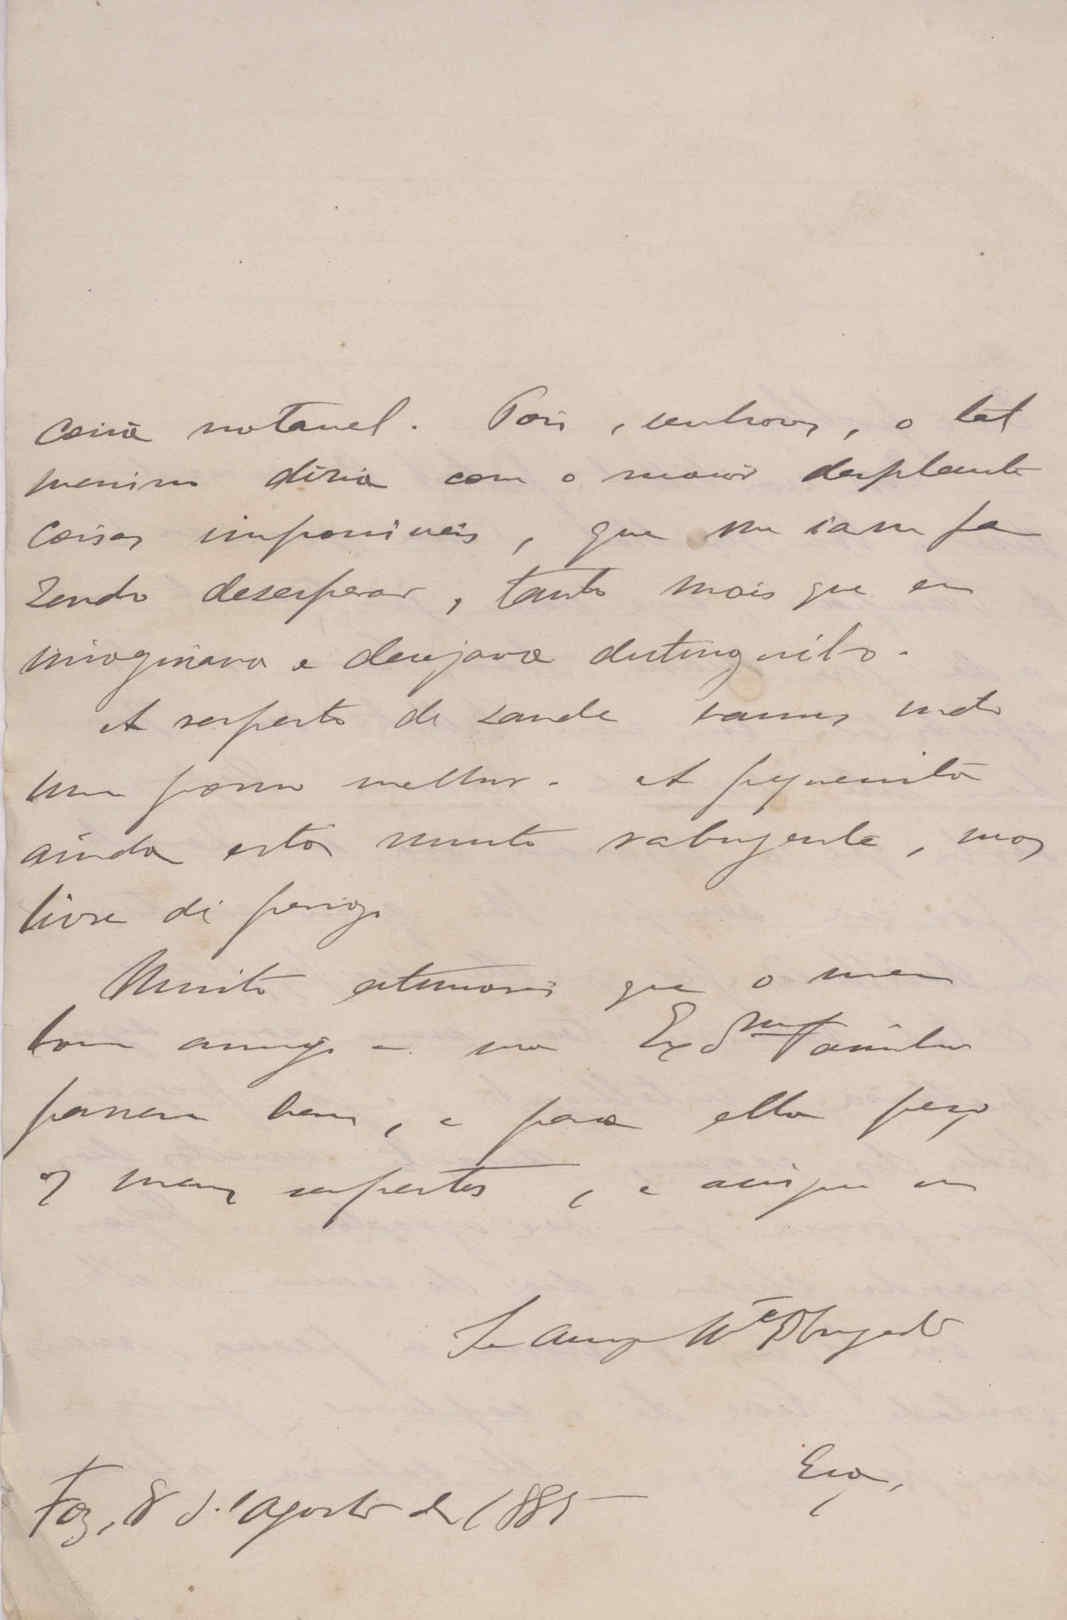 coisa notavel. Pois, senhores, o tal
menino dizia com o maior desplante
coisas impossiveis, que me iam fa
zendo desesperar, tanto mais que eu
imaginava e desejava distinguil-o.
A respeito de saude vamos indo
um pouco melhor. A pequenita
ainda está muito rabugenta, mas
livre de perigo
Muito estimarei que o meu
bom amigo e sua Exc.ma Familia
passem bem, e para ella peço
os meus respeitos, e
Seu amigo Mto Obrigado
Foz, 8 d'agosto de 1885